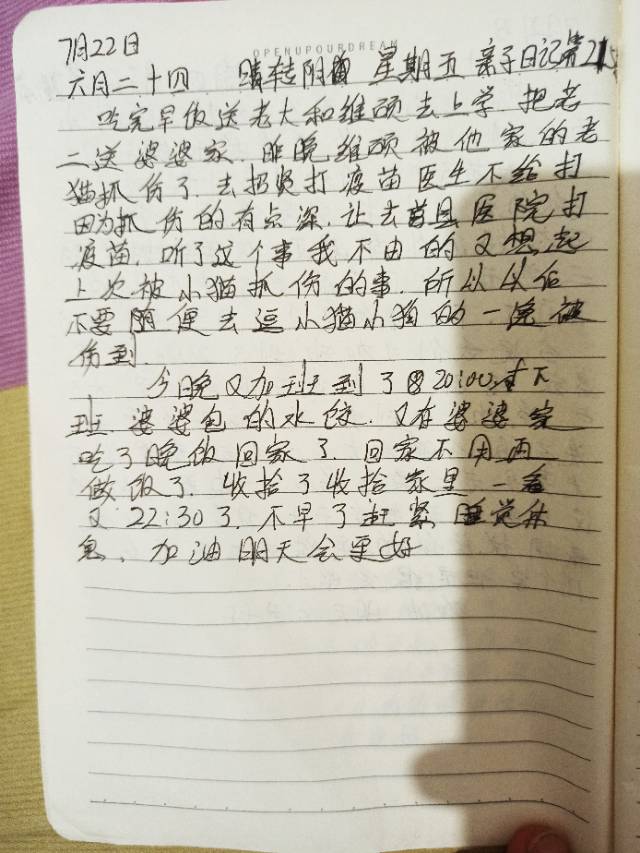 7月22日
OPENUPOURDREAM
六月二十四 晴转阴 星期五 亲子日记第21
吃完早饭送老大和维硕去上学 把老
二送婆婆家.昨晚维硕被他家的老
猫抓伤了.去扔贤打疫苗医生不给打
因为抓伤的有点深.让去县医院打
疫苗.听了这个事我不由的又想起
上次被小猫抓伤的事.所以以后
不要随便去逗小猫小狗的一免被
伤到
今晚又加班到了20:00才下
班.婆婆包的水饺.又在婆婆家
吃了晚饭回家了.回家不用再
做饭了.收拾了收拾家里一看
又22:30了.不早了赶紧睡觉休
息.加油明天会更好